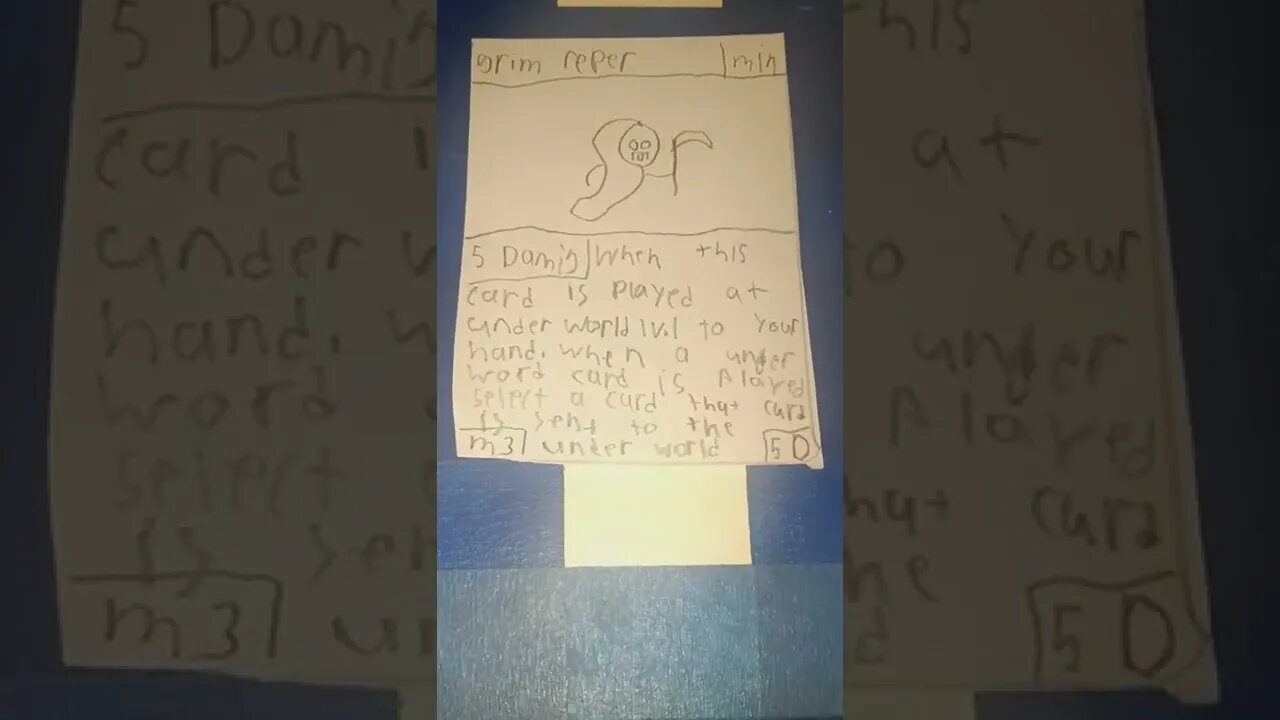 grim reper min
5 Damig When this
card is played at
under world lv.1 to your
hand. when a under
word card is played
select a card that card
is sent to the
m3 under world 5 D